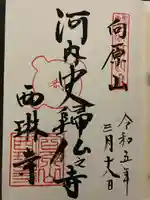 向原山
令和五年
三月十八日
河内史歸仏之寺
西琳寺